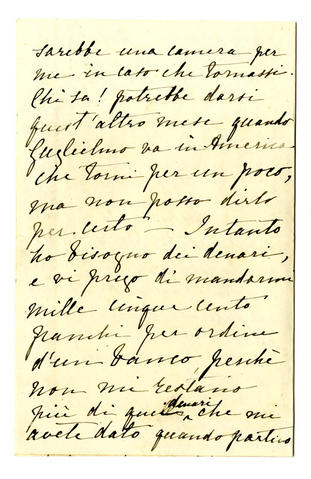 sarebbe una camera per
me in caso che tornassi.
Chi sa! potrebbe darsi
quest'altro mese quando
Guglielmo va in America
che torni per un poco,
ma non posso dirlo
per certo — Intanto
ho bisogno dei denari,
e vi prego di mandarmi
mille cinque cento
franchi per ordine
d'un banco perchè
non mi restano
più di quei denari che mi
avete dato quando partivo